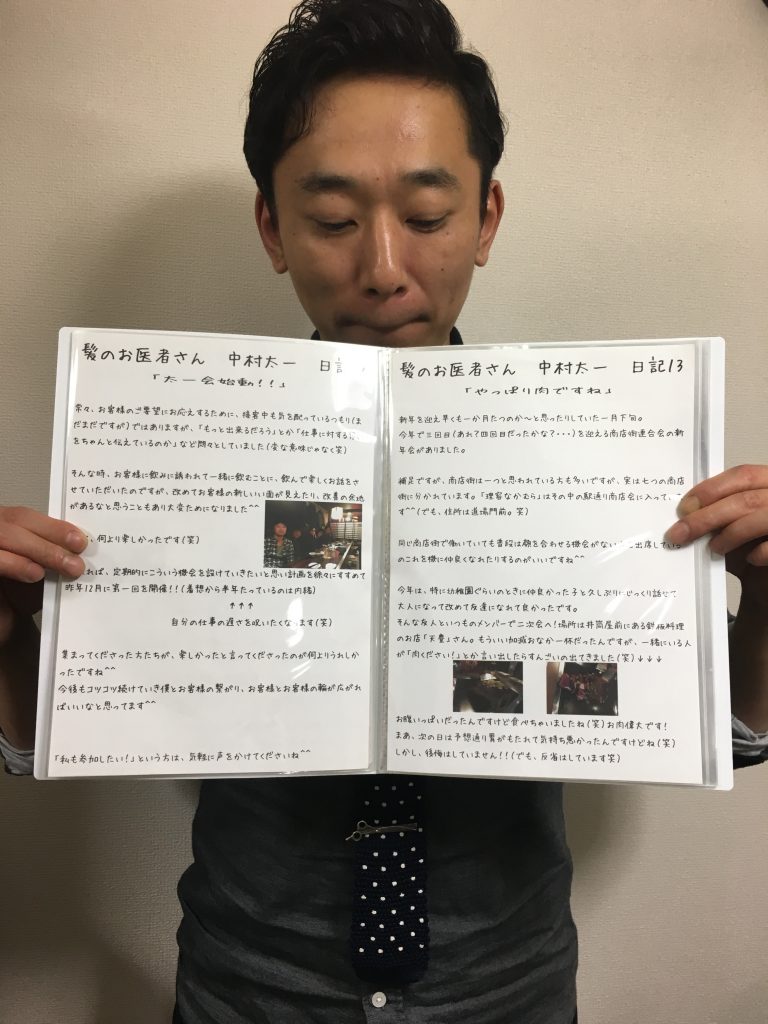 髪のお医者さん　中村太一　日記
「太一会始動！！」
常々、お客様のご要望にお応えするために、接客中も気を配っているつもり(ま
だまだですが)ではありますが、「もっと出来るだろう」とか「仕事に対する
をちゃんと伝えているのか」など悶々としていました(変な意味じゃなく笑)
そんな時、お客様に飲みに誘われて一緒に飲むことに、飲んで楽しくお話をさ
せていただいたのですが、改めてお客様の新しいい面が見えたり、改善の余地
があるなと思うこともあり大変ためになりました^^
、何より楽しかったです(笑)
れば、定期的にこういう機会を設けていきたいと思い計画を徐々にすすめて
昨年12月に第一回を開催！！(着想から半年たっているのは内緒)
↑↑↑
自分の仕事の遅さを呪いたくなります(笑)
集まってくださった方たちが、楽しかったと言ってくださったのが何よりうれしか
ったですね^^
今後もコツコツ続けていき僕とお客様の繋がり、お客様とお客様の輪が広がれ
ばいいなと思ってます^^
「私も参加したい！」という方は、気軽に声をかけてくださいね^^
髪のお医者さん　中村太一　日記13
「やっぱり肉ですね」
新年を迎え早くも一か月たつのか～と思ったりしていた一月下旬。
今年で三回目(あれ？四回目だったかな？・・・)を迎える商店街連合会の新
年会がありました。
補足ですが、商店街は一つと思われている方も多いですが、実は七つの商店
街に分かれています。「理容なかむら」はその中の駅通り商店会に入って
す^^(でも、住所は道場門前。笑)
同じ商店街で働いていても普段は顔を合わせる機会がない
のこれを機に仲良くなれたりするのがいいですね^^
今年は、特に幼稚園ぐらいのときに仲良かった子と久しぶりにじっくり話せて
大人になって改めて友達になれて良かったです。
そんな友人といつものメンバーで二次会へ！場所は井筒屋前にある鉄板料理
のお店「天豊」さん。もういい加減おなか一杯だったんですが、一緒にいる人
が「肉ください！」とか言い出したらすんごいの出てきました(笑)↓↓↓
お腹いっぱいだったんですけど食べちゃいましたね(笑)お肉偉大です！
まあ、次の日は予想通り胃がもたれて気持ち悪かったんですけどね(笑)
しかし、後悔はしていません！！(でも、反省はしています笑)